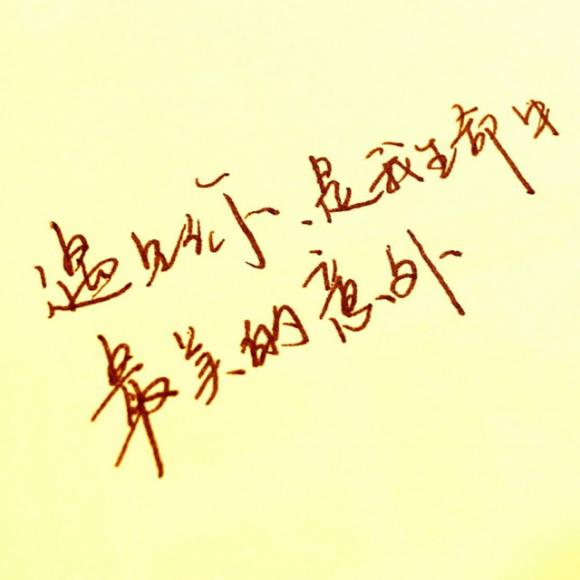 遇见 是我生命中
最美的意外